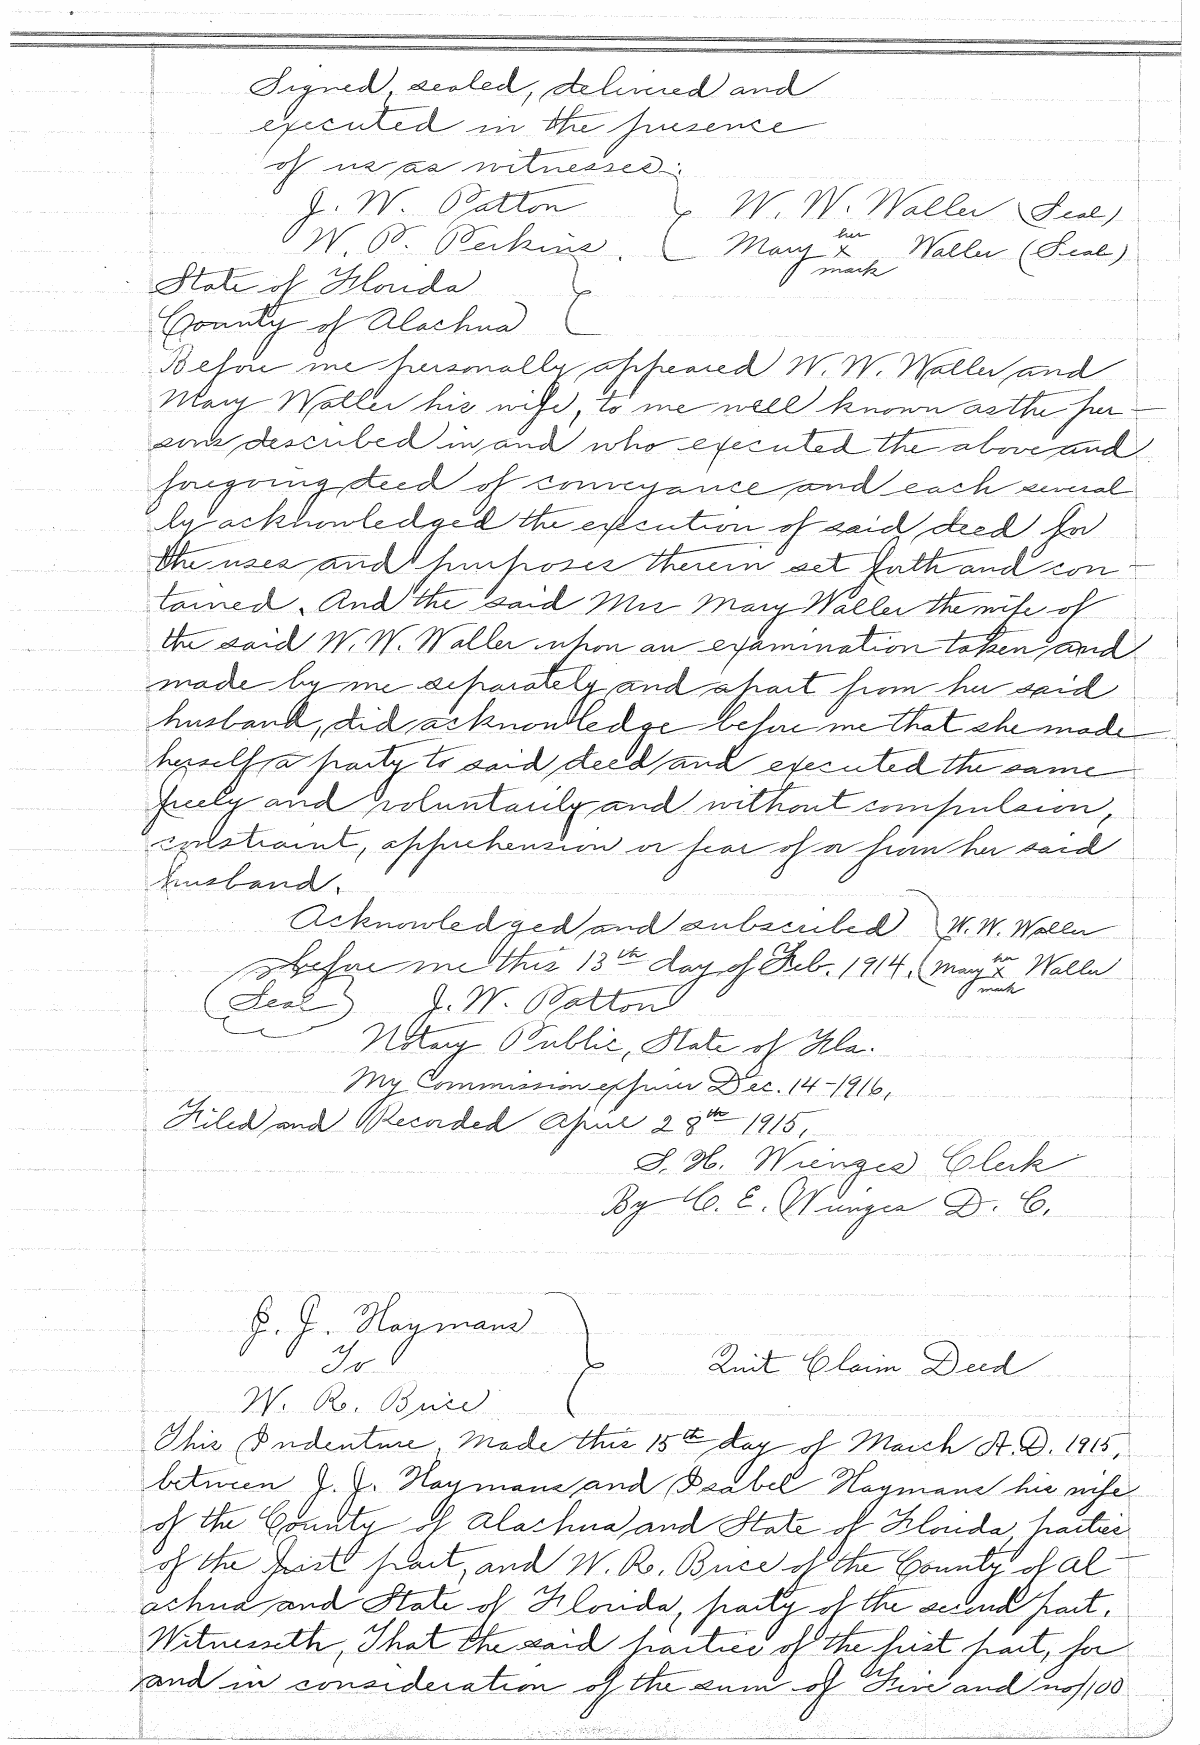 Signed, sealed, delivered and
executed in the presence
of us as witnesses:
J. W. Patton W. W. Waller (Seal)
W. P. Perkins. Mary her x mark Waller (Seal)
State of Florida
County of Alachua
Before me personally appeared W. W. Waller and
Mary Waller his wife, to me well known as the per-
sons described in and who executed the above and
foregoing deed of conveyance and each several
ly acknowledged the execution of said deed for
the uses and purposes therein set forth and con-
tained. And the said Mrs Mary Waller the wife of
the said W. W. Waller upon an examination taken and
made by me separately and apart from her said
husband, did acknowledge before me that she made
herself a party to said deed and executed the same
freely and voluntarily and without compulsion,
constraint, apprehension or fear of or from her said
husband.
Acknowledged and subscribed W. W. Waller
before me this 13th day of Feb. 1914. Mary her x mark Waller
(Seal) J. W. Patton
Notary Public, State of Fla.
My Commission expires Dec. 14-1916,
Filed and Recorded April 28th 1915,
S. H. Wienges Clerk
By C. E. Wienges D. C.
J. J. Haymans
To Quit Claim Deed
W. R. Brice
This Indenture, Made this 15th day of March A.D. 1915,
between J. J. Haymans and Isabel Haymans his wife
of the County of Alachua and State of Florida, parties
of the first part, and W. R. Brice of the County of Al-
achua and State of Florida, party of the second part.
Witnesseth, That the said parties of the first part, for
and in consideration of the sum of Five and no/100